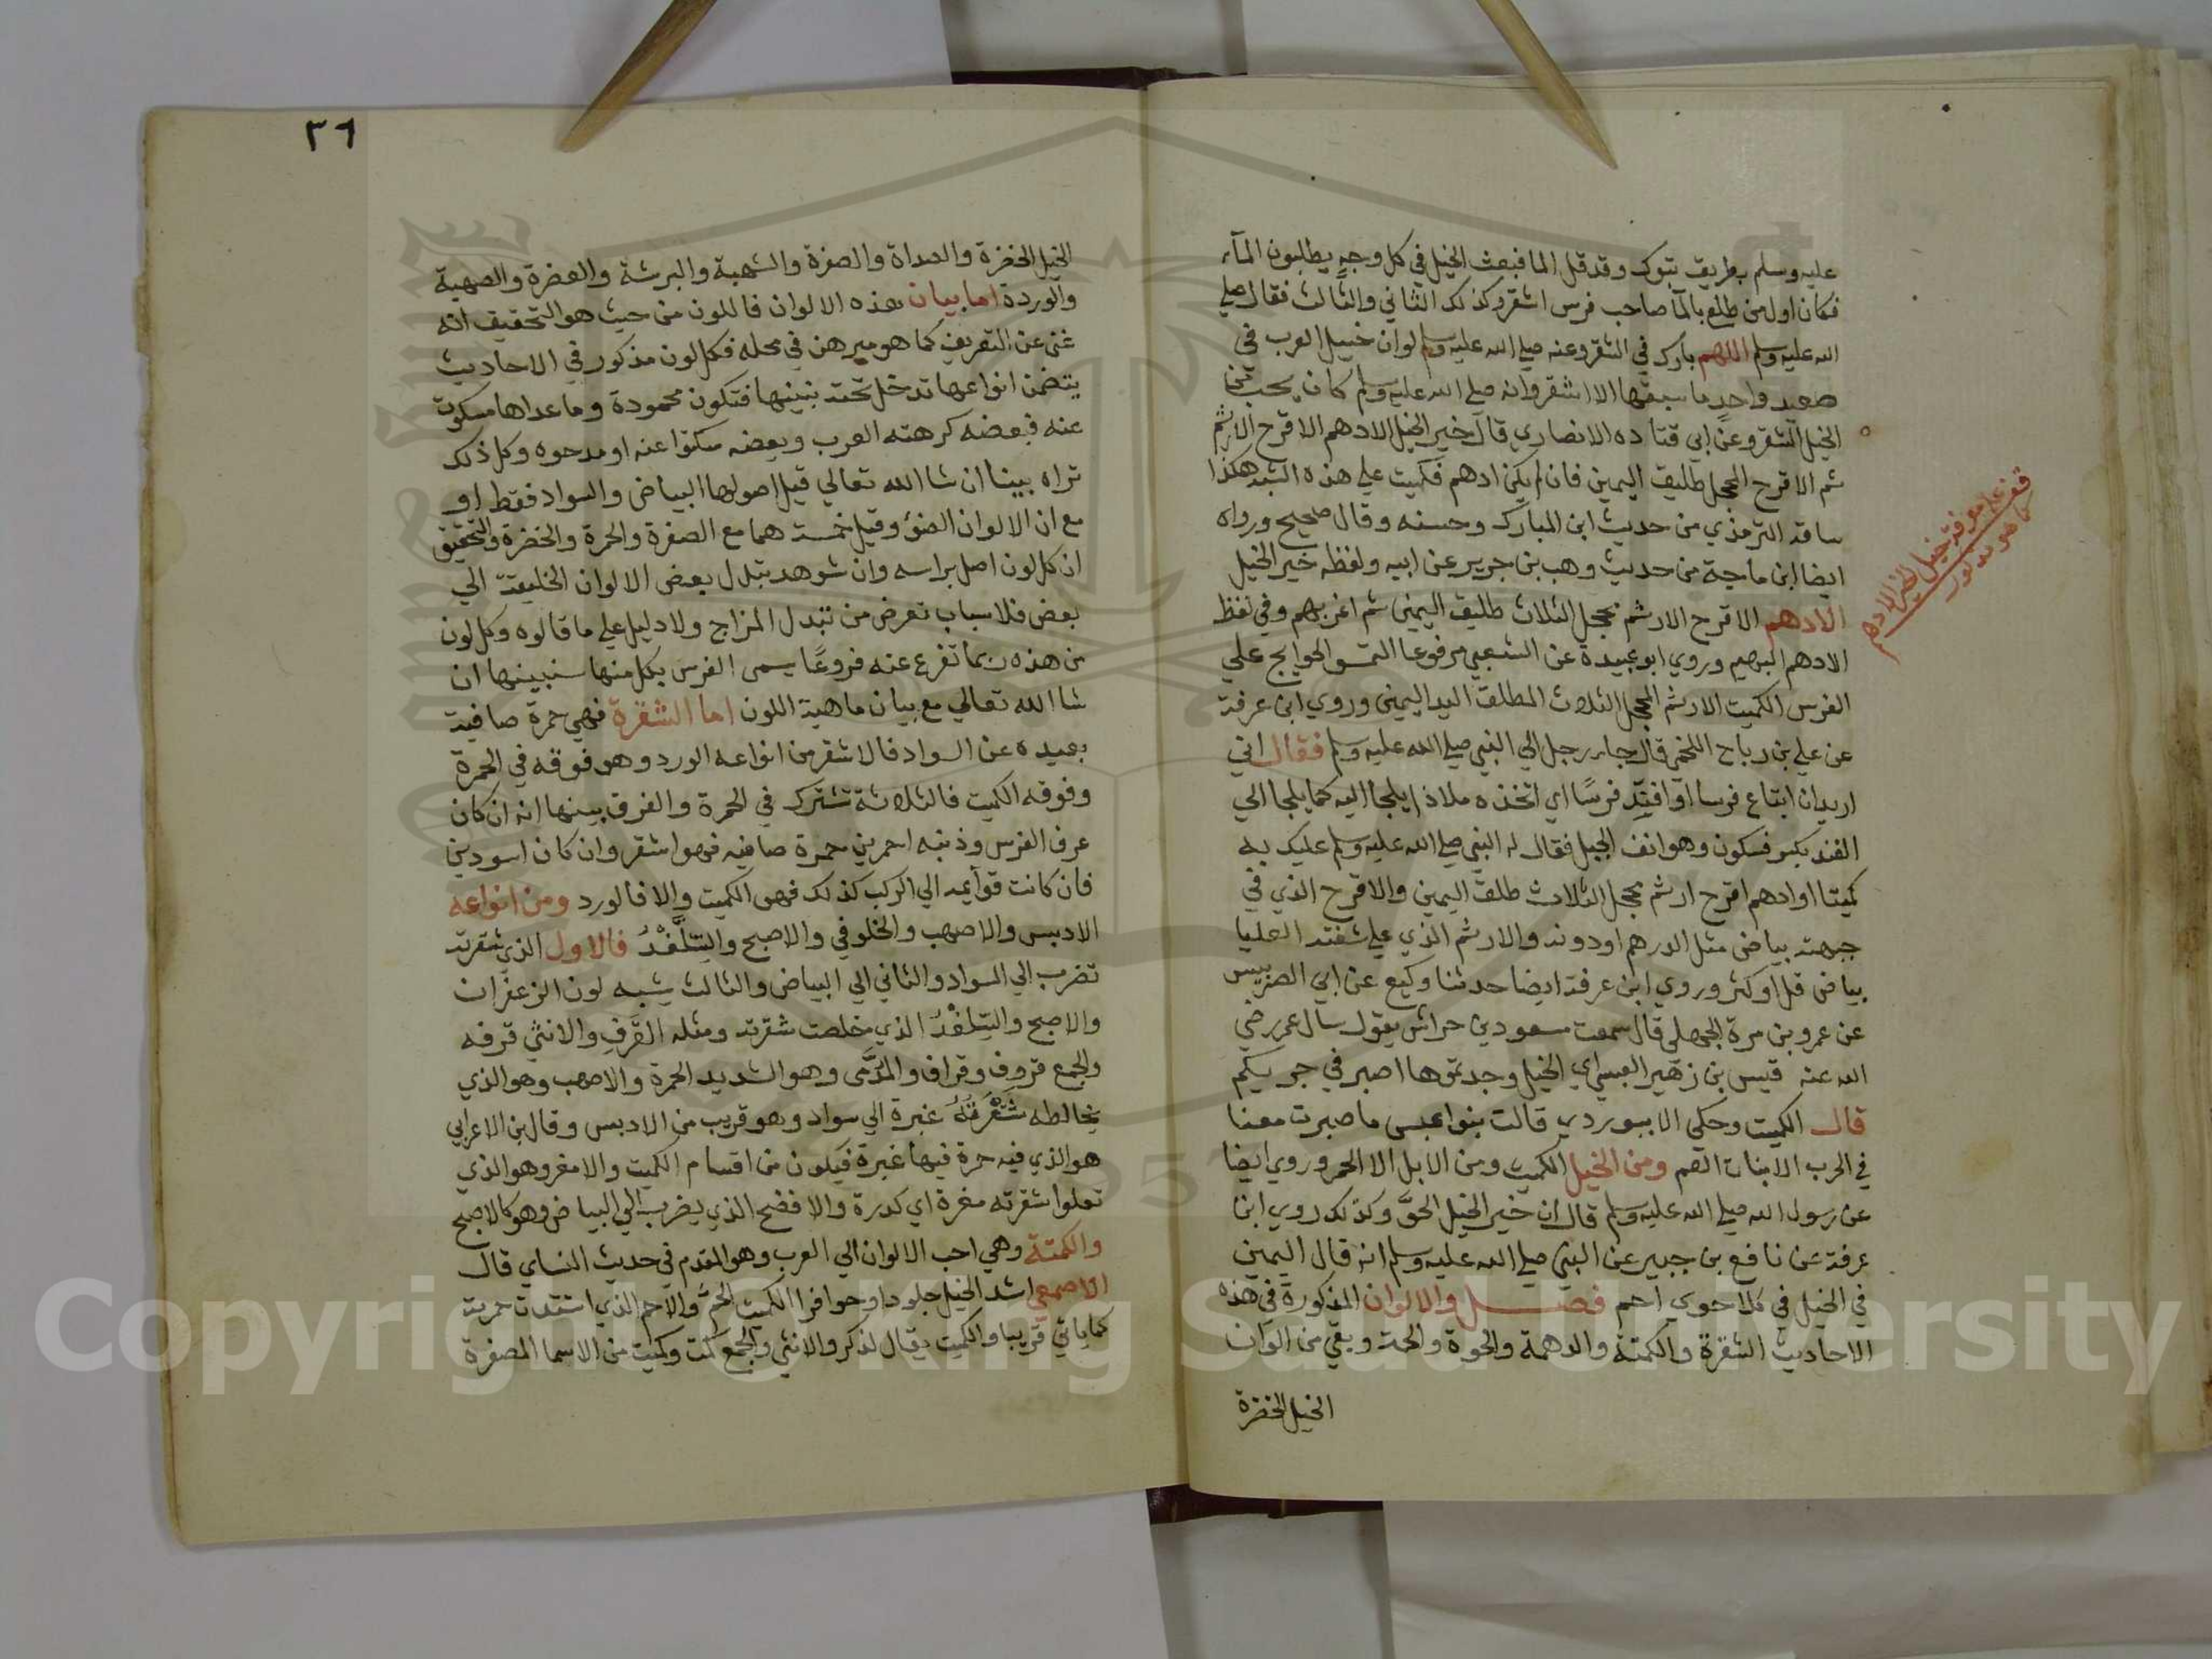 عليه وسلم بطريق تبوك وقد قل الما فبعث الخيل في كل وجهٍ يطلبون المآء
فكان اول من طلع بالمآ صاحب فرس اشقر وكذلك الثاني والثالث فقال صلي
الله عليه وسلم اللهم بارك في الشقر وعنه صلي الله عليه وسلم لو ان خيل العرب في
صعيد واحدٍ ما سبقها الا اشقر وانه صلي الله عليه وسلم كان يحب من
الخيل الشقر وعن ابي قتاده الانصاري قال خير الخيل الادهم الاقرح الارثم
ثم الاقرح المحجل طليق اليمين فان لم يكن ادهم فكميت علي هذه الشيه هكذا
ساقه الترمذي من حديث ابن المبارك وحسنه وقال صحيح ورواه
ايضا ابن ماجة من حديث وهب بن جرير عن ابيه ولفظه خير الخيل
الادهم الاقرح الارثم محجل الثلاث طليق اليمنى ثم اغر بهيم وفي لفظ
الادهم البهيم وروي ابو عبيدة عن الشعبي مرفوعا التمسو الحوايج علي
الفرس الكميت الارثم المحجل الثلاث المطلق اليد اليمنى وروي ابن عرفة
عن علي بن رباح اللخمي قال جاء رجل الي النبي صلي الله عليه وسلم فقال اني
اريد ان ابتاع فرسا او افتد فرسًا اي اتخذه ملاذا يلجا اليه كما يلجا الي
الفند بكسر فسكون وهو انف الجبل فقال له النبي صلي الله عليه وسلم عليك به
كميتا او ادهم اقرح ارثم محجل الثلاث طلق اليمين والاقرح الذي في
جبهته بياض مثل الدرهم او دونه والارثم الذي علي شفته العليا
بياض قل او كثر وروي ابن عرفة ايضا حدثنا وكيع عن ابي الضريس
عن عمرو بن مرة الجهلي قال سمعت مسعود بن حراش يقول سال عمر رضي
الله عنه قيس بن زهير العبسي اي الخيل وجدتموها اصبر في حربكم
قال الكميت وحكي الابيوردي قالت بنوا عبس ما صبرت معنا
في الحرب الا بنات العم ومن الخيل الكميت ومن الابل الا الحمر وروي ايضا
عن رسول الله صلي الله عليه وسلم قال ان خير الخيل الحوّ وكذلك روي ابن
عرفة عن نافع بن جبير عن النبي صلي الله عليه وسلم انه قال اليمين
في الخيل في كل احوي احم فصل والالوان المذكورة في هذه
الاحاديث الشقرة والكمتة والدهمة والحوة والحمة وبقي من الوان
الخيل الخضرة
علم معرفة خيل الخير الادهم
كما هو مذكور
٣٦
الخيل الخضرة والصداة والصفرة والشهبة والبرشة والعفرة والصهبة
والوردة اما بيان هذه الالوان فاللون من حيث هو التحقيق انه
غني عن التعريف كما هو مبرهن في محله فكل لون مذكور في الاحاديث
يتضمن انواعها تدخل تحته بنينها فتكون محمودة وما عداها مسكوت
عنه فبعضه كرهته العرب وبعضه سكتوا عنه او مدحوه وكل ذلك
تراه بينا ان شا الله تعالي قيل اصولها البياض والسواد فقط او
مع ان الالوان الضوء وقيل خمسة هما مع الصفرة والحمرة والخضرة والتحقيق
ان كل لون اصل براسه وان شوهد بتبدل بعض الالوان الخليقة الي
بعض فلاسباب تعرض من تبدل المزاج ولا دليل علي ما قالوه وكل لون
من هذه ربما تفرع عنه فروعًا يسمى الفرس بكل منها سنبينها ان
شا الله تعالي مع بيان ماهية اللون اما الشقرة فهي حمرة صافية
بعيده عن السواد فالاشقر من انواعه الورد وهو فوقه في الحمرة
وفوقه الكميت فالثلاثة تشترك في الحمرة والفرق بينها انه ان كان
عرف الفرس وذنبه احمرين حمرة صافيه فهو اشقر وان كان اسودين
فان كانت قوايمه الي الركب كذلك فهو الكميت والا فالورد ومن انواعه
الادبس والاصهب والخلوفي والاصبح والسِّلَّغْدُ فالاول الذي شقرته
تضرب الي السواد والثاني الي البياض والثالث يشبه لون الزعفران
والاصبح والسِّلغْدُ الذي خلصت شقرته ومثله القَرَفِ والانثي قرفه
والجمع قروف وقراف والمدَمَّى وهو الشديد الحمرة والاصهب وهو الذي
يخالطه شُقْرَتَهُ غبرة الي سواد وهو قريب من الادبس وقال بن الاعرابي
هو الذي فيه حمرة فيها غبرة فيكون من اقسام الكميت والامغر وهو الذي
تعلوا شقرته مغرة اي كدرة والافضح الذي يضرب الي البياض وهو كالاصبح
والكمتة وهي احب الالوان الي العرب وهو المقدم في حديث النساي قال
الاصمعي اشد الخيل جلودا وحوافرا الكميت الحمُّ والاحم الذي اشتدت حمرته
كما ياتي قريبا والكميت يقال لذكر والانثي والجمع كمت وكميت من الاسما المصغرة
Copyright © King Saud University